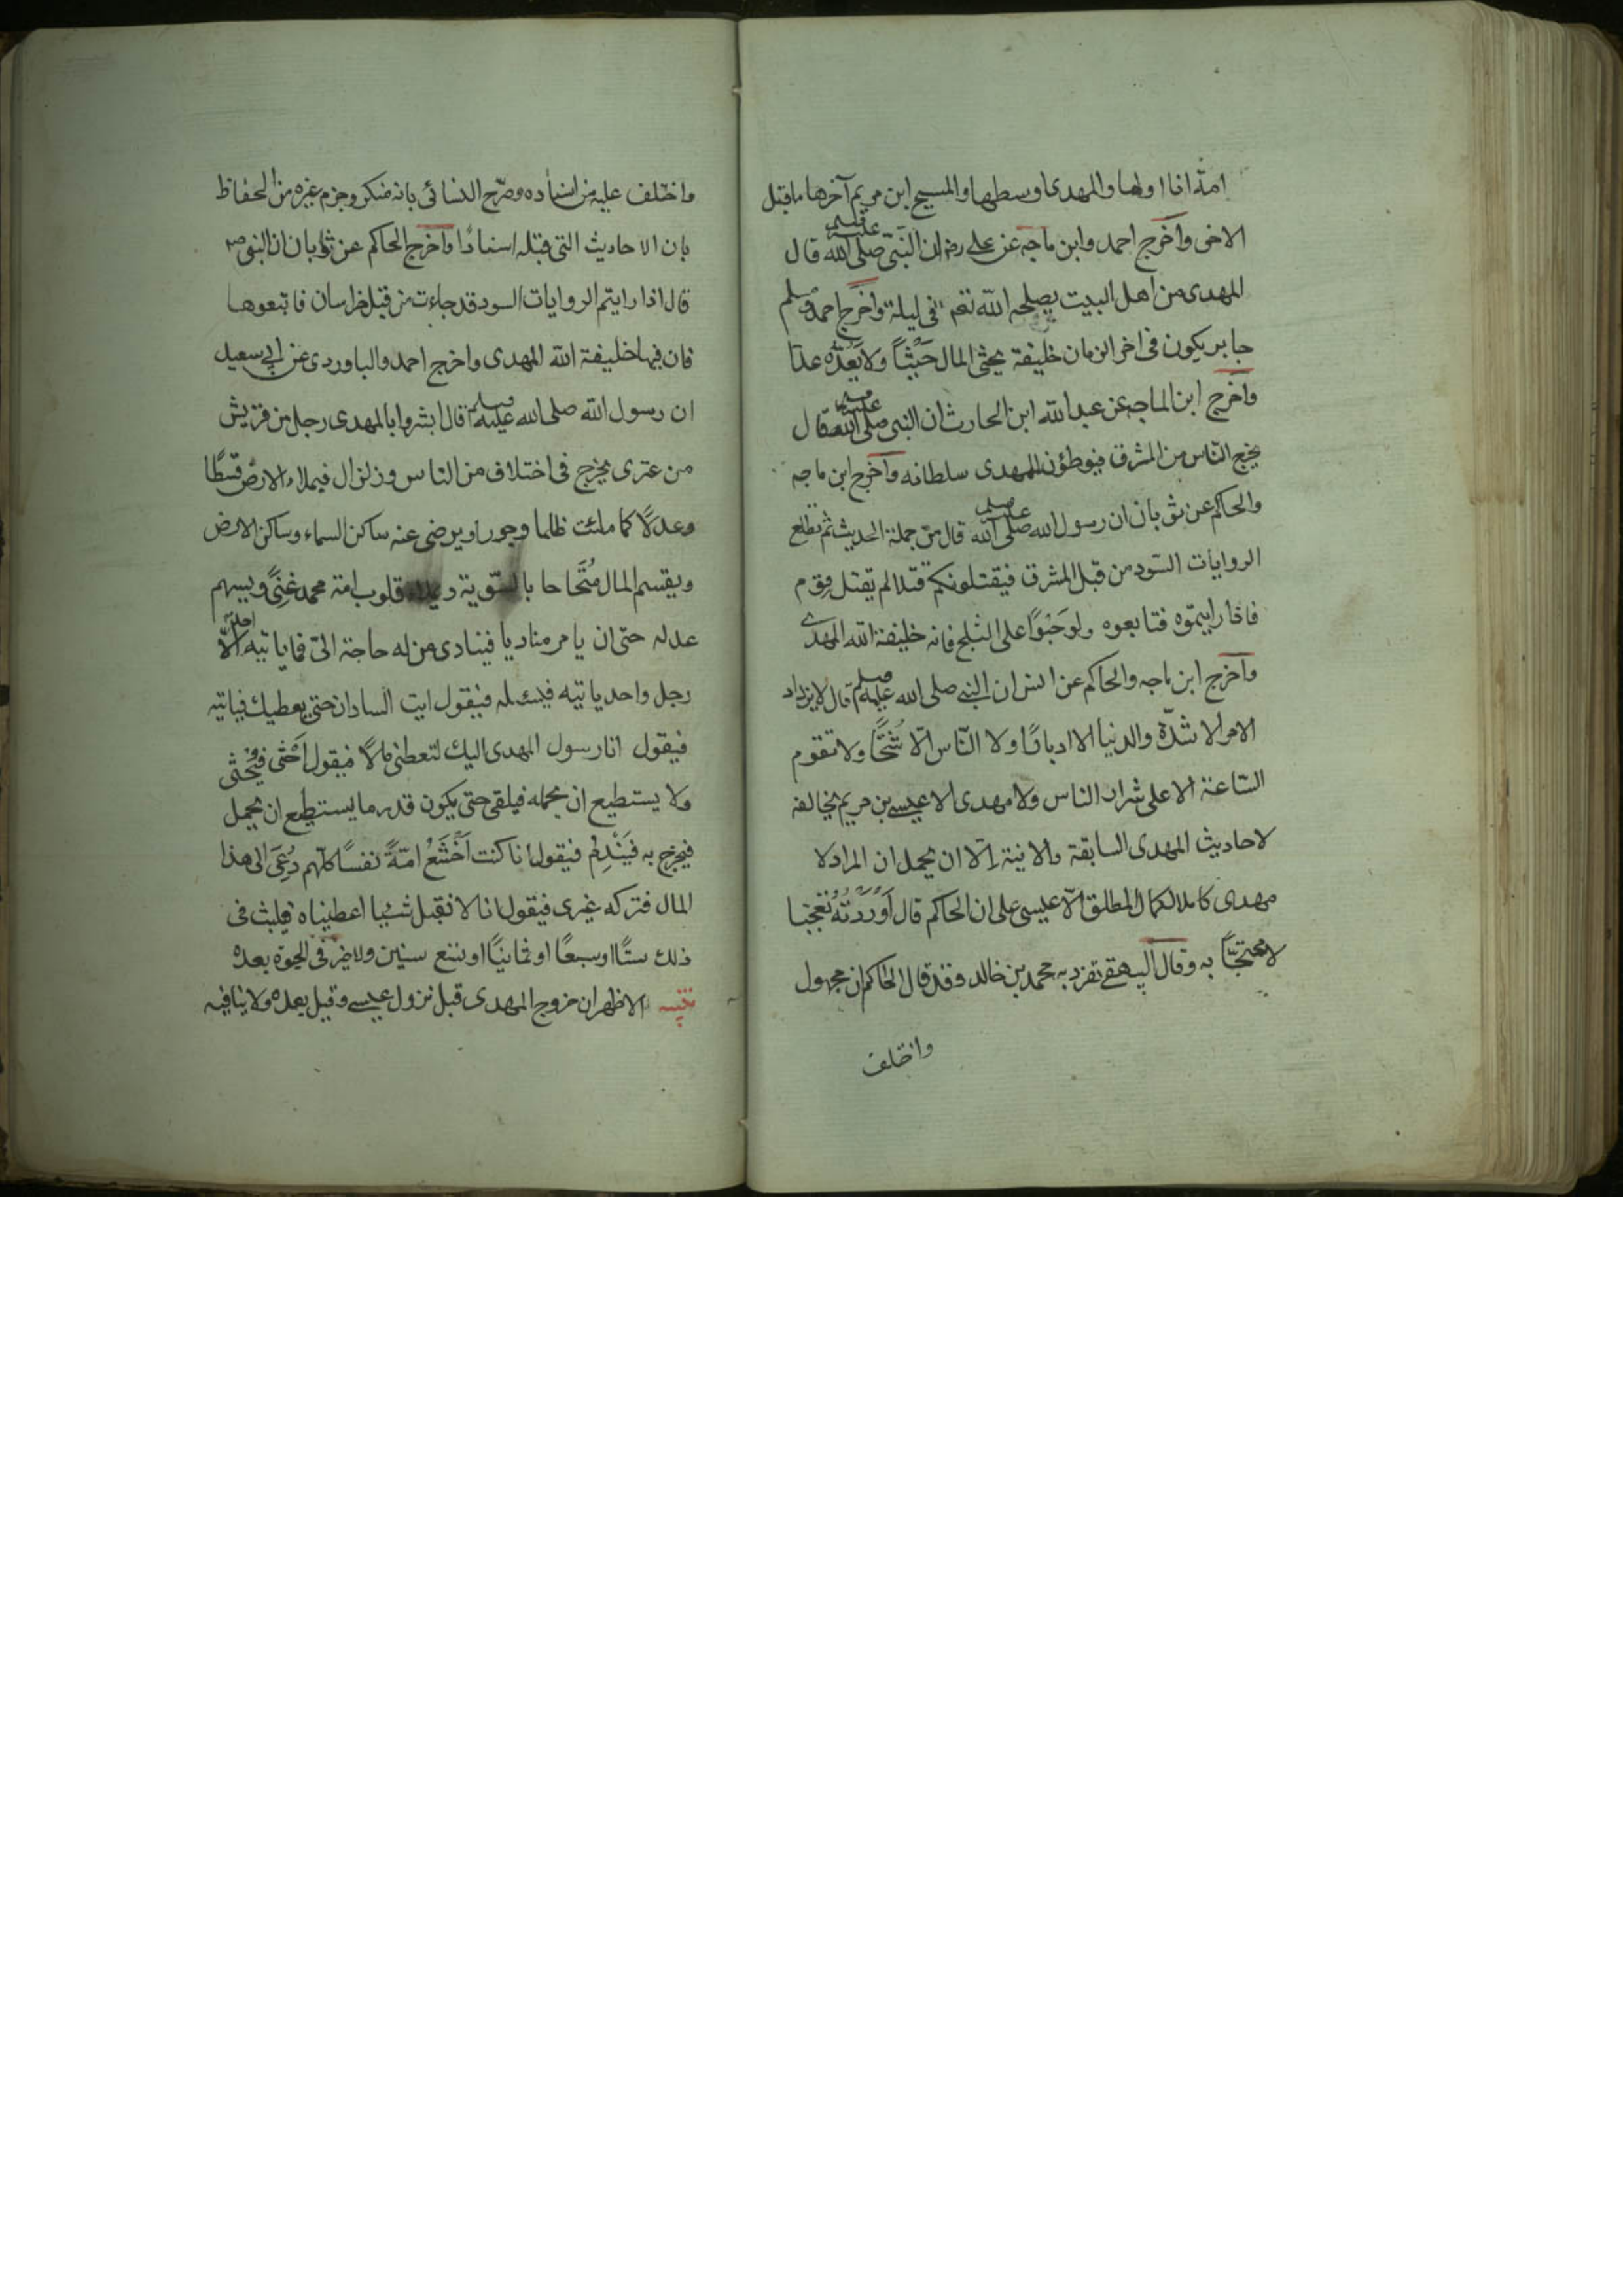 امة انا اولها والمهدى وسطها والمسيح ابن مريم آخرها ما قبل
الاخى وآخرج احمد وابن ماجه عن على رض ان النبّى صلى الله عليه وسلم قال
المهدى من اهل البيت يصلحه الله تعم فى ليلة وآخرج احمد ومسلم
جابر يكون فى اخر الزمان خليفة يحثى المال حَثيًا ولا يَعُدّه عدّا
وآخرج ابن الماجه عن عبد الله ابن الحارث ان النبى صلى الله عليه وسلم قال
يخرج النّاس من المشرق فيوطؤن للمهدى سلطانه وآخرج ابن ماجه
والحاكم عن ثوبان ان رسول الله صلى الله عليه وسلم قال من جملة الحديث ثم تطلع
الروايات السّود من قبل المشرق فيقتلونكم قتلا لم يقتل قوم
فاذا رايتموه فتابعوه ولو حَبْوًا على الثلج فانه خليفة الله المهدى
وآخرج ابن ماجه والحاكم عن انس ان النبى صلى الله عليه وسلم قال لا يزداد
الامر الا شدّة والدنيا الا ادبارًا ولا النّاس الّا شُحًّا ولا تقوم
السّاعة الا على شرار الناس ولا مهدى الا عيسى بن مريم يخالفه
لاحاديث المهدى السابقة والاتية الّا ان يحمل ان المراد لا
مهدى كاملا لكمال المطلق الّا عيسى على ان الحاكم قال اَوْرَدْتُهُ تعجبا
لا محتجًّا به وقال البيهقى تفرد به محمد بن خالد وقد قال الحاكم ان مجهول
واختلف
واختلف عليه من اسناده وصرّح النسائى بانه منكر وجزم غيره من الحفاظ
بان الاحاديث التى قبله اسنادًا وآخرج الحاكم عن ثوبان ان النبى ص
قال اذا رايتم الروايات السود قد جاءت من قبل خراسان فاتبعوها
فان فيها خليفة الله المهدى واخرج احمد والباوردى عن ابى سعيد
ان رسول الله صلى الله عليه وسلم قال ابشروا بالمهدى رجل من قريش
من عترى يخرج فى اختلاف من الناس وزلزال فيملاء الارض قسطًا
وعدلًا كما ملئت ظلما وجورا ويرضى عنه ساكن السماء وساكن الارض
ويقسم المال صُحَّاحا بالسّوية ويملاء قلوب امة محمد غِنىً ويسيهم
عدله حتى ان يامر مناديا فينادى من له حاجة الىّ فما ياتيه احد الّا
رجل واحد ياتيه فيسئله فيقول ايت السادان حتى يعطيك فياتيه
فيقول انا رسول المهدى اليك لتعطنى مالًا فيقول اَحْثى فيُحثى
ولا يستطيع ان يحمله فيلقى حتى يكون قدر ما يستطيع ان يحمل
فيخرج به فَيَنْدِمُ فيقول انا كنت اَخْشَعُ امّةً نفسًا كلّهم دُعِىَ الى هذا
المال فتركه غيرى فيقول انا لا نقبل شيئا اعطيناه فيلبث فى
ذلك ستًّا او سبعًا او ثمانيًا او تسع سنين ولا خير فى الحيوة بعده
تنبيه الاظهر ان خروج المهدى قبل نزول عيسى وقيل بعده ولا ينافيه